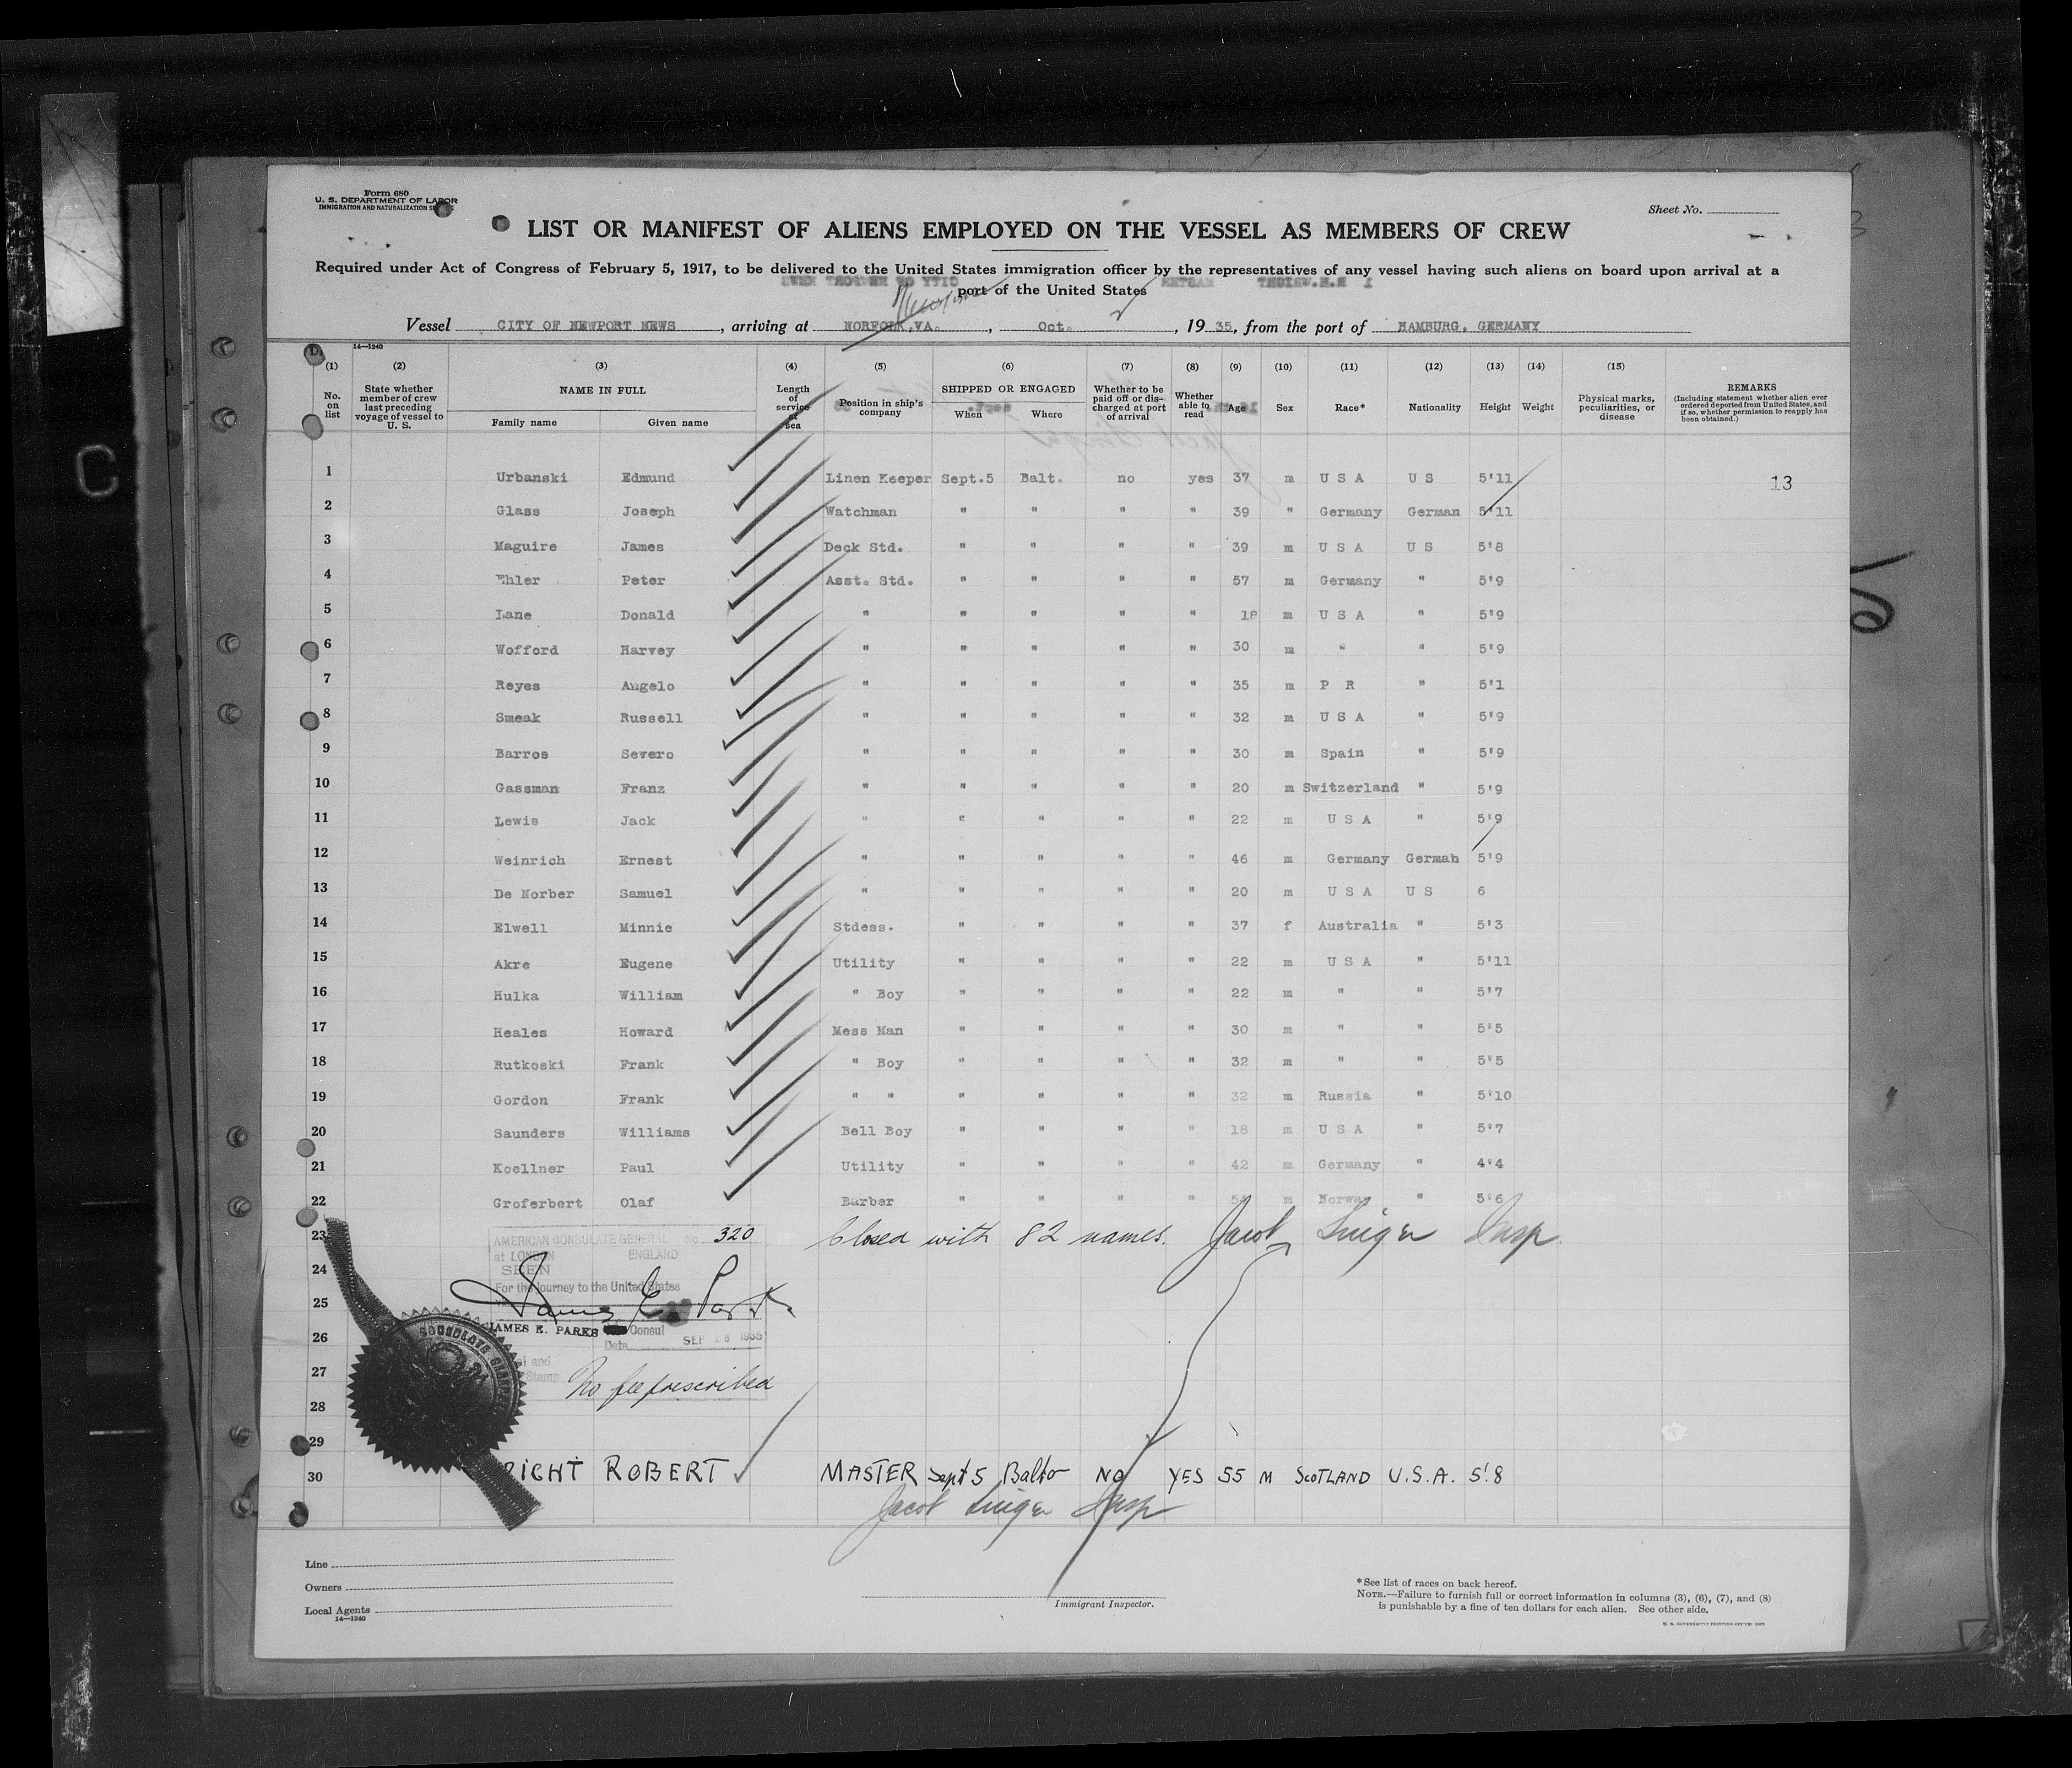 Form 680
U. S. DEPARTMENT OF LABOR
IMMIGRATION AND NATURALIZATION
Sheet No.
LIST OR MANIFEST OF ALIENS EMPLOYED ON THE VESSEL AS MEMBERS OF CREW
Required under Act of Congress of February 5, 1917, to be delivered to the United States immigration officer by the representatives of any vessel having such aliens on board upon arrival at a
port of the United States
Vessel CITY OF NEWPORT NEWS, arriving at NORFOLK,VA., Oct., 19 35, from the port of HAMBURG, GERMANY
14—1240
(1) (2) (3) (4) (5) (6) (7) (8) (9) (10) (11) (12) (13) (14) (15)
No. on list State whether member of crew last preceding voyage of vessel to U. S. NAME IN FULL Family name Given name Length of service at sea Position in ship's company SHIPPED OR ENGAGED When Where Whether to be paid off or discharged at port of arrival Whether able to read Age Sex Race* Nationality Height Weight Physical marks, peculiarities, or disease REMARKS (Including statement whether alien ever ordered deported from United States, and if so, whether permission to reapply has been obtained.)
1 Urbanski Edmund Linen Keeper Sept.5 Balt. no yes 37 m U S A U S 5'11 13
2 Glass Joseph Watchman " " " " 39 " Germany German 5'11
3 Maguire James Deck Std. " " " " 39 m U S A U S 5'8
4 Ehler Peter Asst. Std. " " " " 57 m Germany " 5'9
5 Lane Donald " " " " " 18 m U S A " 5'9
6 Wofford Harvey " " " " " 30 m " " 5'9
7 Reyes Angelo " " " " " 35 m P R " 5'1
8 Smeak Russell " " " " " 32 m U S A " 5'9
9 Barros Severo " " " " " 30 m Spain " 5'9
10 Gassman Franz " " " " " 20 m Switzerland " 5'9
11 Lewis Jack " " " " " 22 m U S A " 5'9
12 Weinrich Ernest " " " " " 46 m Germany German 5'9
13 De Norber Samuel " " " " " 20 m U S A U S 6
14 Elwell Minnie Stdess. " " " " 37 f Australia " 5'3
15 Akre Eugene Utility " " " " 22 m U S A " 5'11
16 Hulka William " Boy " " " " 22 m " " 5'7
17 Heales Howard Mess Man " " " " 30 m " " 5'5
18 Rutkoski Frank " Boy " " " " 32 m " " 5'5
19 Gordon Frank " " " " " " 32 m Russia " 5'10
20 Saunders Williams Bell Boy " " " " 18 m U S A " 5'7
21 Koellner Paul Utility " " " " 42 m Germany " 4'4
22 Groferbert Olaf Barber " " " " m Norway " 5'6
23 Closed with 82 names. Jacob Singer Insp.
AMERICAN CONSULATE GENERAL No. 320
at LONDON ENGLAND
24
SEEN
For the journey to the United States
25
James E. Parks
JAMES E. PARKS Consul
26
Date SEP 18 1935
27
No fee prescribed
28
29
30 RIGHT ROBERT MASTER Sept 5 Balto NO YES 55 M SCOTLAND U.S.A. 5'.8
Jacob Singer Insp
Line
Owners
Local Agents
14—1240
Immigrant Inspector.
*See list of races on back hereof.
NOTE.—Failure to furnish full or correct information in columns (3), (6), (7), and (8)
is punishable by a fine of ten dollars for each alien. See other side.